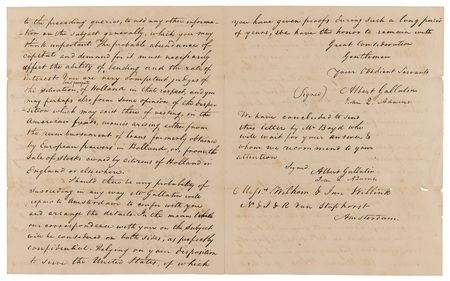 to the preceding queries, to add any other informa-
tion on the subject generally, which you may
think important. The probable abundance of
capital and demand for it must necessarily
affect the ability of lending and the rate of
interest. You are very competent judges of
the situation, and prospects of Holland in that respect, and you
may perhaps also form some opinion of the dispo-
sition which may exist there of vesting, on the
American funds, monies arising either from
the reimbursement of loans formerly obtained
by European powers in Holland, or, from the
Sale of stocks owned by citizens of Holland in
England or elsewhere.
Should there be any probability of
succeeding in any way Mr Gallatin will
repair to Amsterdam to confer with you
and arrange the details. In the mean while
our correspondence with you on the subject
will be considered on both sides, as perfectly
confidential. Relying on your disposition
to serve the United States, of which
you have given proofs during such a long period
of years, we have the honor to remain with
Great Consideration
Gentlemen
Your Obedient Servants
(Signed) Albert Gallatin
John Q. Adams
We have concluded to send
this letter by Mr Boyd who
will wait for your answer &
whom we recommend to your
attention
Signed Albert Gallatin
John Q. Adams
Messrs. Wilhem & Jan Willink
N & J & R Van Staphorst
Amsterdam.